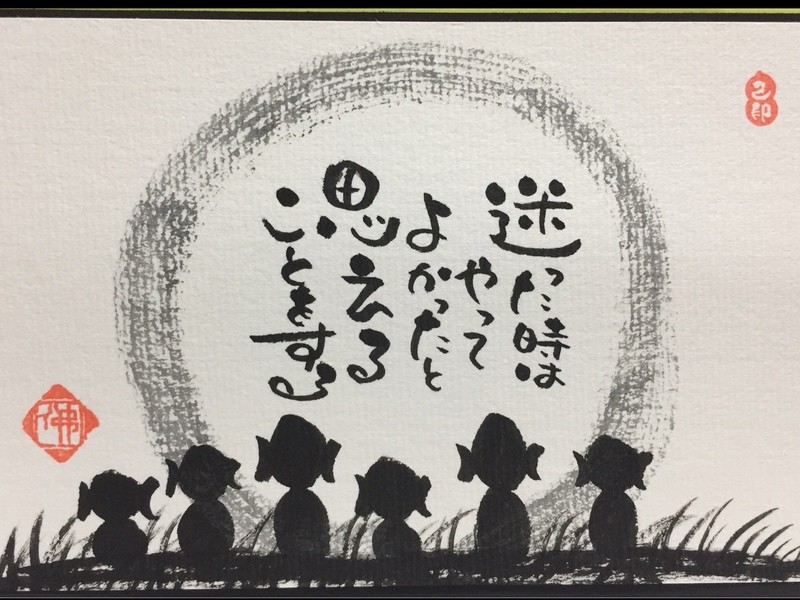 迷った時は
やって
よかったと
思える
ことをする
佛